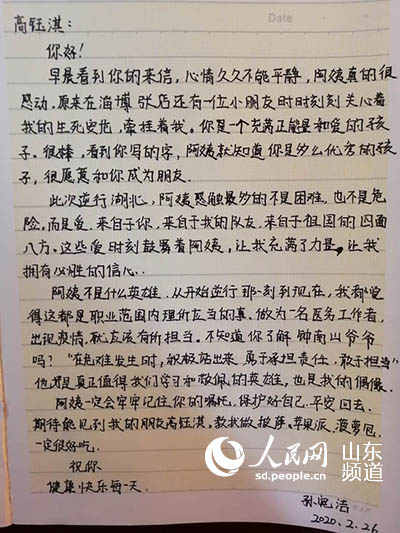 Date
高钰淇：
你好！
早晨看到你的来信，心情久久不能平静，阿姨真的很
感动，原来在淄博张店还有一位小朋友时时刻刻关心着
我的生死安危，牵挂着我。你是一个充满正能量和爱的孩
子。很棒，看到你写的字，阿姨就知道你是多么优秀的孩
子，很愿意和你成为朋友。
此次逆行湖北，阿姨感触最多的不是困难，也不是危
险，而是爱。来自于你，来自于我的队友，来自于祖国的四面
八方。这些爱时刻鼓舞着阿姨，让我充满了力量，让我
拥有必胜的信心。
阿姨不是什么英雄。从开始逆行那一刻到现在，我都觉
得这都是职业范围内理所应当的真，做为一名医务工作者，
出现疫情，就应该有所担当。不知道你了解钟南山爷爷
吗？“在危难发生时，积极站出来，勇于承担责任，敢于担当”
他才是真正值得我们学习和敬佩的英雄，也是我的偶像。
阿姨一定会牢牢记住你的嘱托，保护好自己，平安回去。
期待能见到我的朋友高钰淇，教我做披萨、苹果派、菠萝包，
一定很好吃。
祝你
健康快乐每一天。
人民网 山东
sd.people.cn 频道
孙 洁
2020.2.26